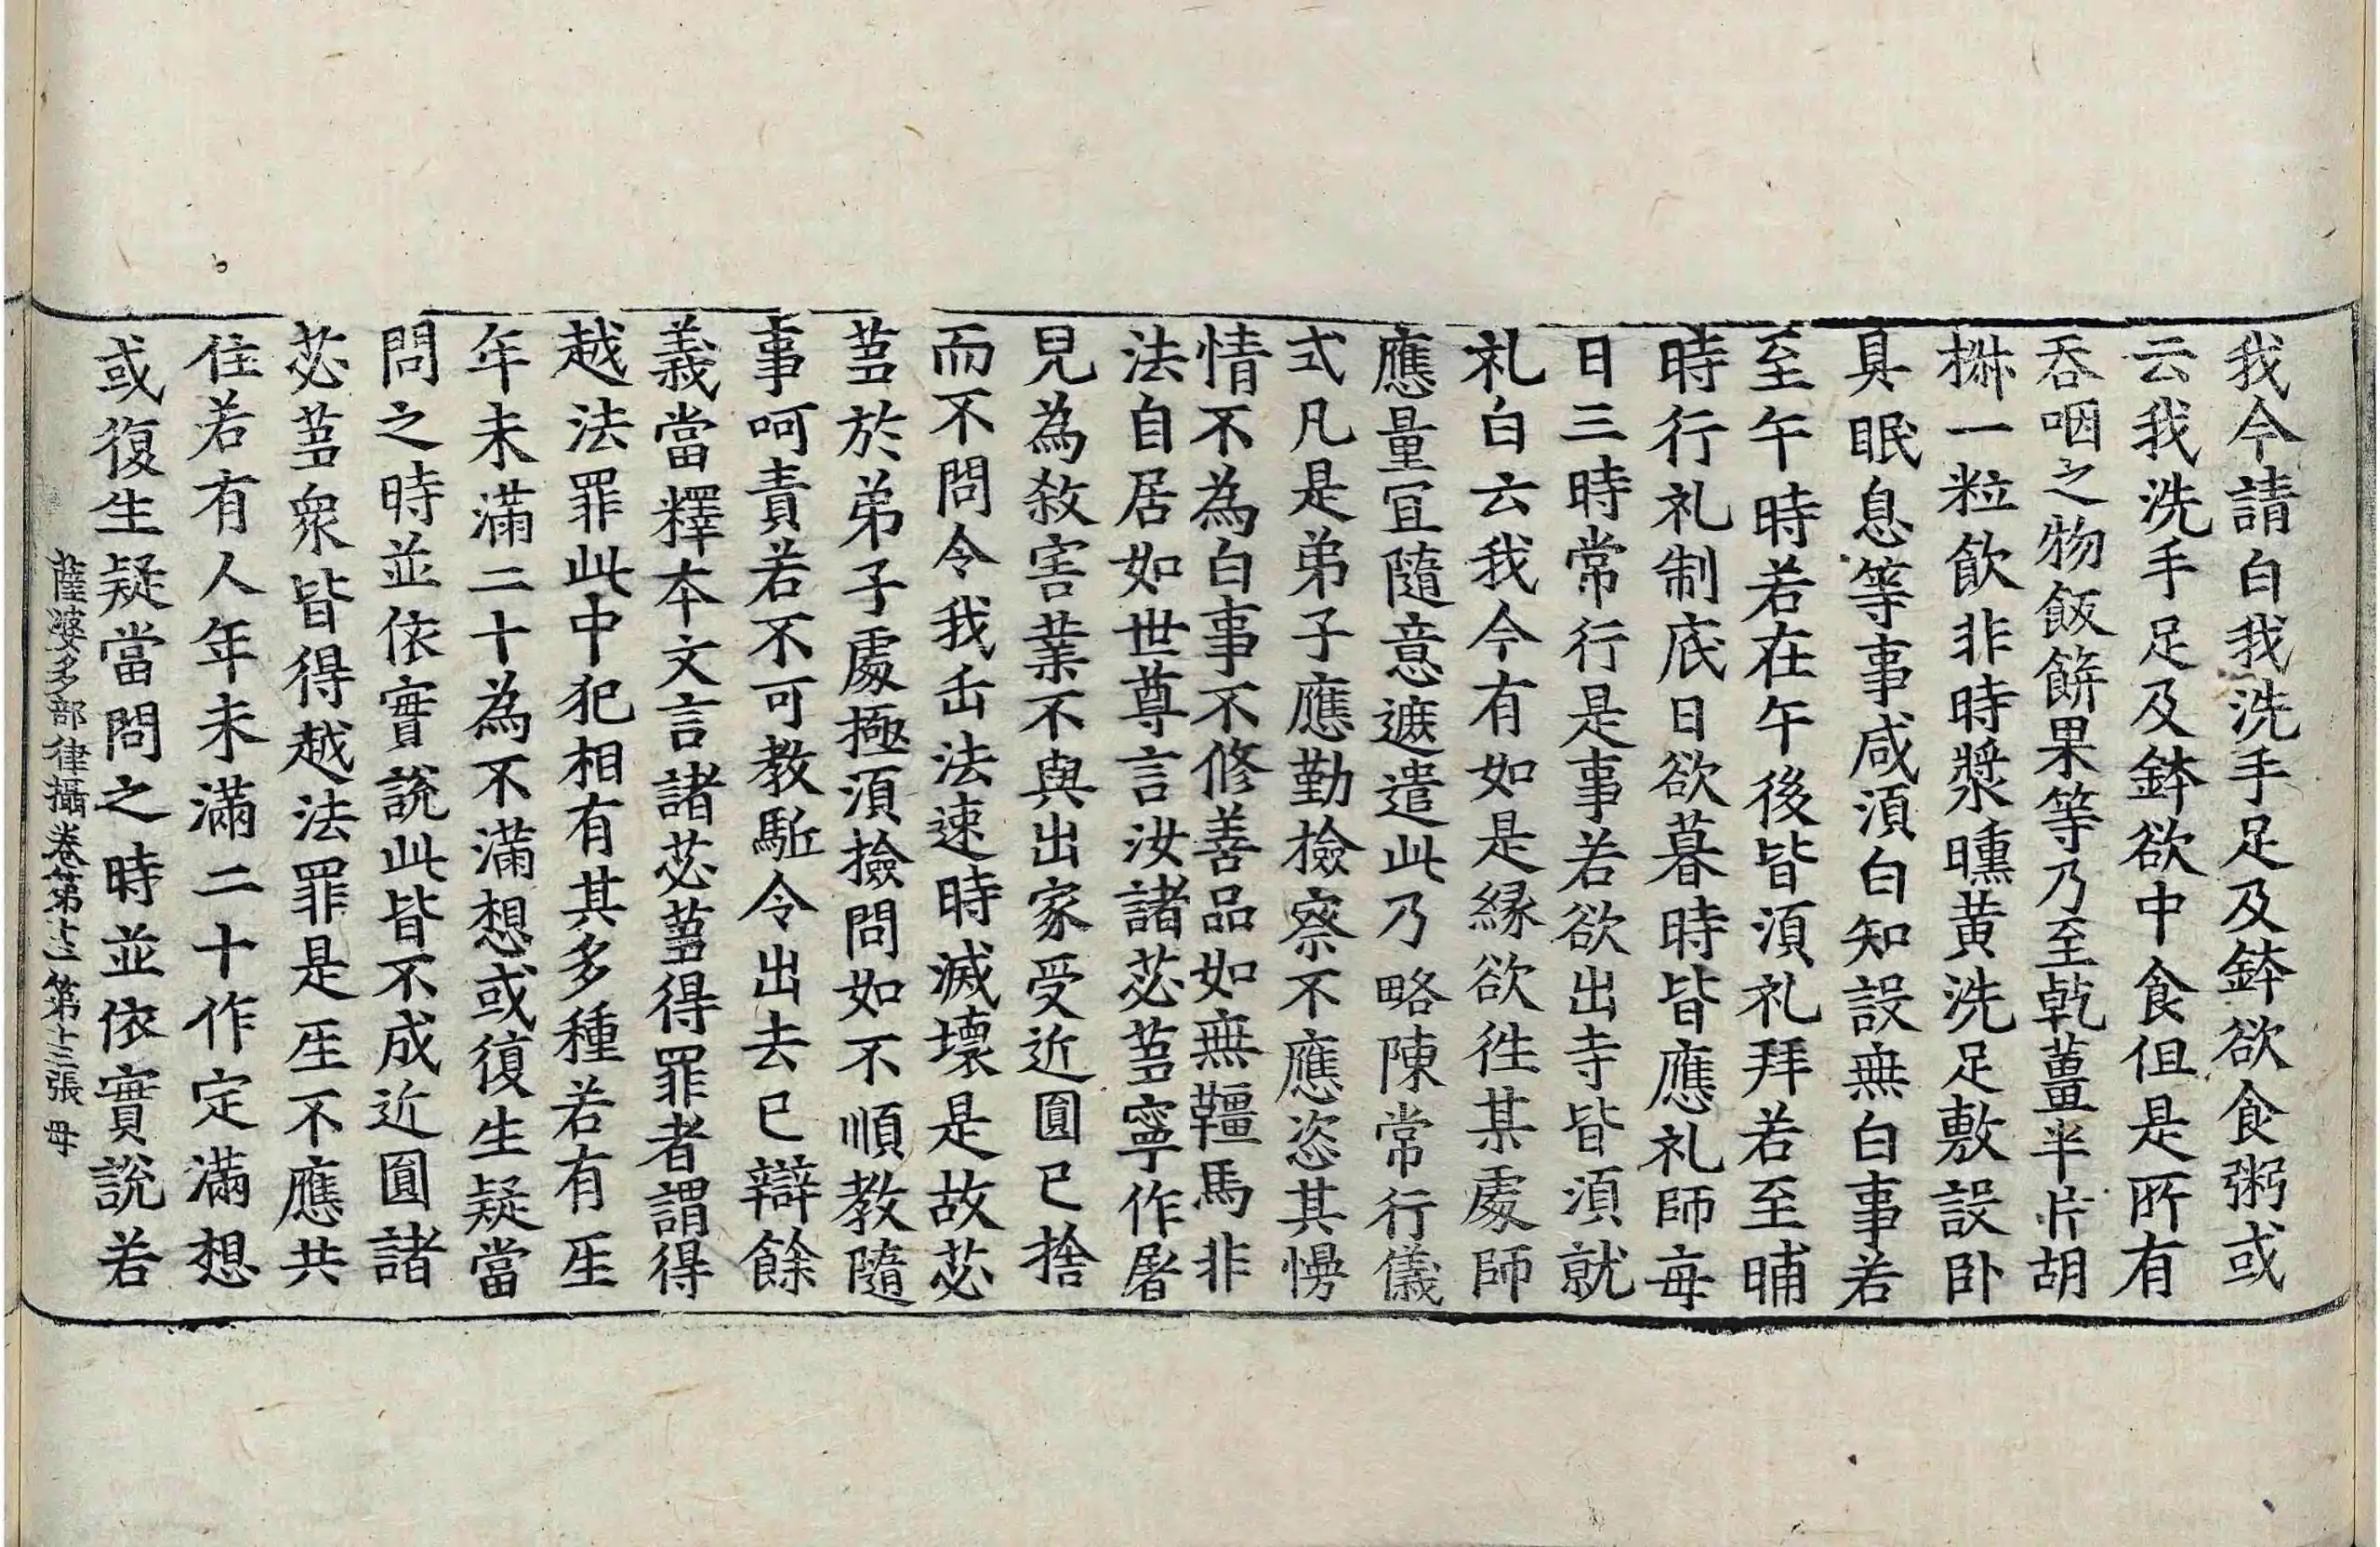 我今請白我洗手足及鉢欲食粥或
云我洗手足及鉢欲中食但是所有
吞咽之物飯餅果等乃至乾薑半片胡
椒一粒飲非時漿曛黃洗足敷設卧
具眠息等事咸須白知設無白事若
至午時若在午後皆須礼拜若至晡
時行礼制底日欲暮時皆應礼師每
日三時常行是事若欲出寺皆須就
礼白云我今有如是緣欲往某處師
應量宜隨意遮遣此乃略陳常行儀
式凡是弟子應勤撿察不應恣其慢
情不為白事不修善品如無韁馬非
法自居如世尊言汝諸苾蒭寧作屠
兒為敘害業不與出家受近圓已捨
而不問令我𠙽法速時滅壞是故苾
蒭於弟子處極須撿問如不順教隨
事呵責若不可教駈令出去已辯餘
義當釋本文言諸苾蒭得罪者謂得
越法罪此中犯相有其多種若有𤯔
年未滿二十為不滿想或復生疑當
問之時並依實說此皆不成近圓諸
苾蒭衆皆得越法罪是𤯔不應共
住若有人年未滿二十作定滿想
或復生疑當問之時並依實說若
薩婆多部律攝卷第十二 第十三張 母